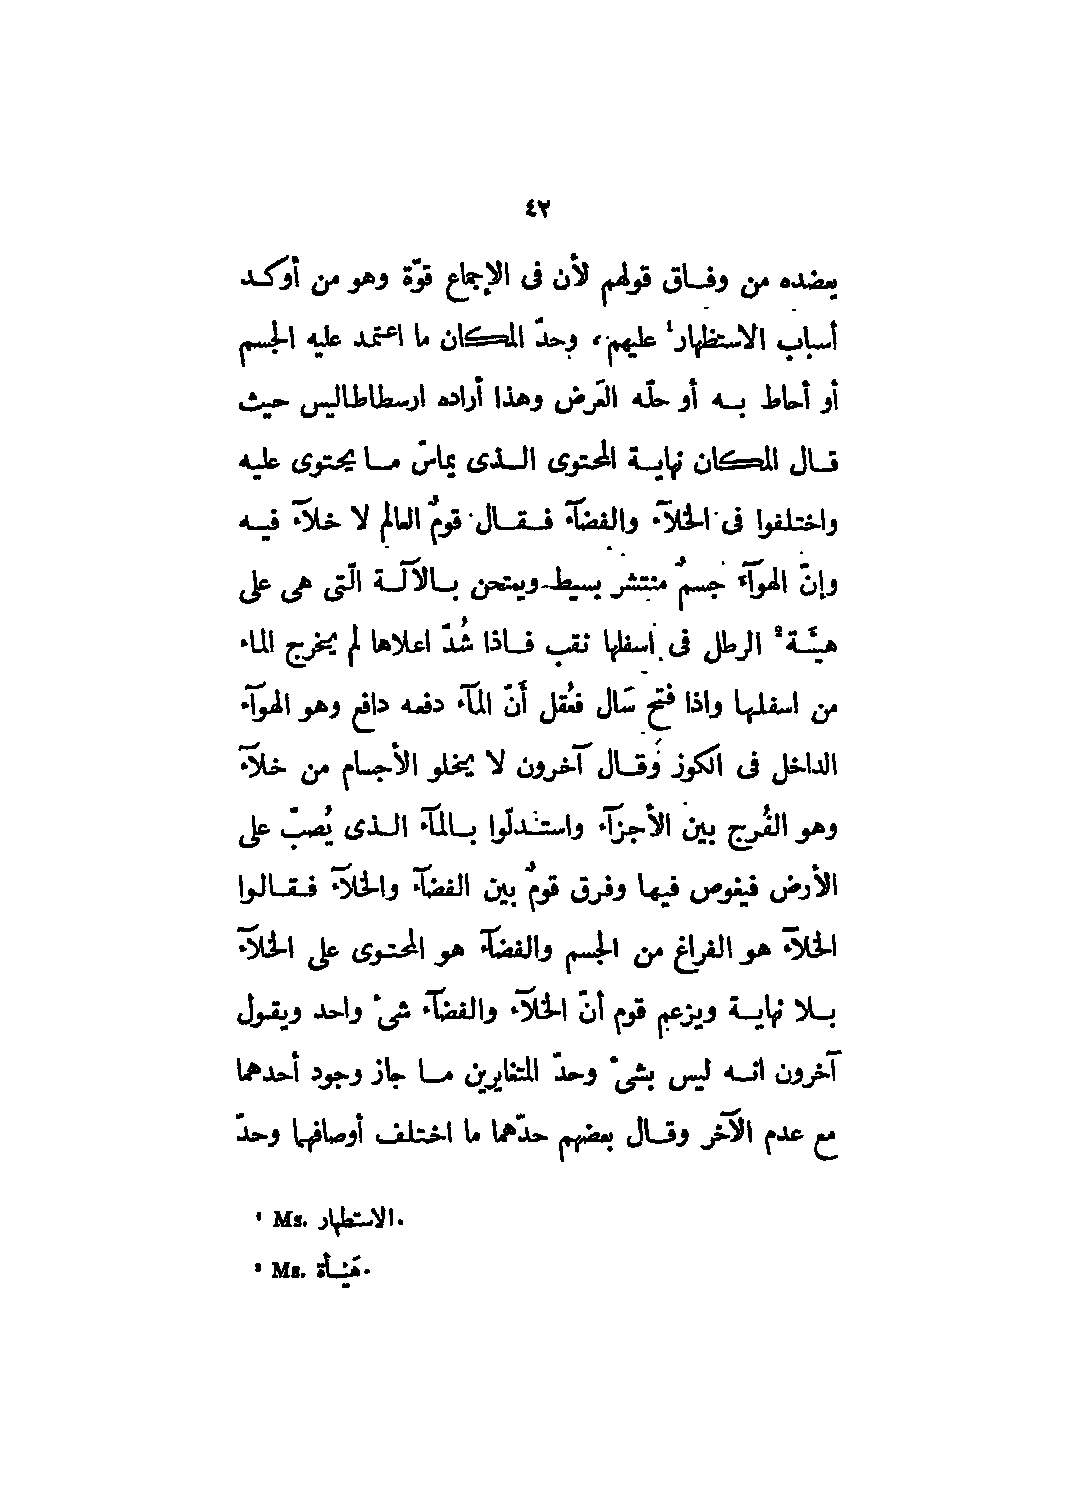 ٤٢
يعضده من وفاق قولهم لأن فى الإجماع قوّة وهو من أوكد
أسباب الاستظهار¹ عليهم، وحدّ المكان ما اعتمد عليه الجسم
أو أحاط به أو حلّه العَرض وهذا أراده ارسطاطاليس حيث
قال المكان نهاية المحتوى الذى يماسّ ما يحتوى عليه
واختلفوا فى الخلآء والفضآء فقال قومٌ العالم لا خلآء فيه
وإنّ الهوآء جسمٌ منتشر بسيط ويمتحن بالآلة الّتى هى على
هيئة² الرطل فى اسفلها نقب فاذا شُدّ اعلاها لم يخرج الماء
من اسفلها واذا فتح سَال فعُقل أنّ المآء دفعه دافع وهو الهوآء
الداخل فى الكوز وقال آخرون لا يخلو الأجسام من خلآء
وهو الفُرج بين الأجزآء واستدلّوا بالمآء الذى يُصبّ على
الأرض فيغوص فيها وفرق قومٌ بين الفضآء والخلآء فقالوا
الخلآء هو الفراغ من الجسم والفضآء هو المحتوى على الخلآء
بلا نهاية ويزعم قوم أنّ الخلآء والفضآء شىء واحد ويقول
آخرون انه ليس بشىء وحدّ المتغايرين ما جاز وجود أحدهما
مع عدم الآخر وقال بعضهم حدّهما ما اختلف أوصافها وحدّ
¹ Ms. الاستطهار.
² Ms. هَيْأة.